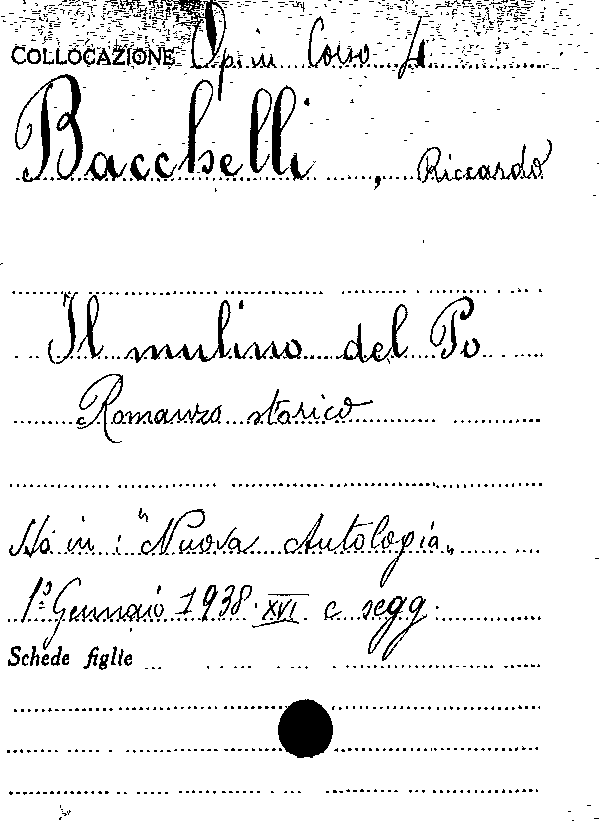 COLLOCAZIONE Op. in Corso 4
Bacchelli, Riccardo
Il mulino del Po
Romanzo storico
Sta in: "Nuova Antologia"
1º Gennaio 1938. XVI e segg.
Schede figlie